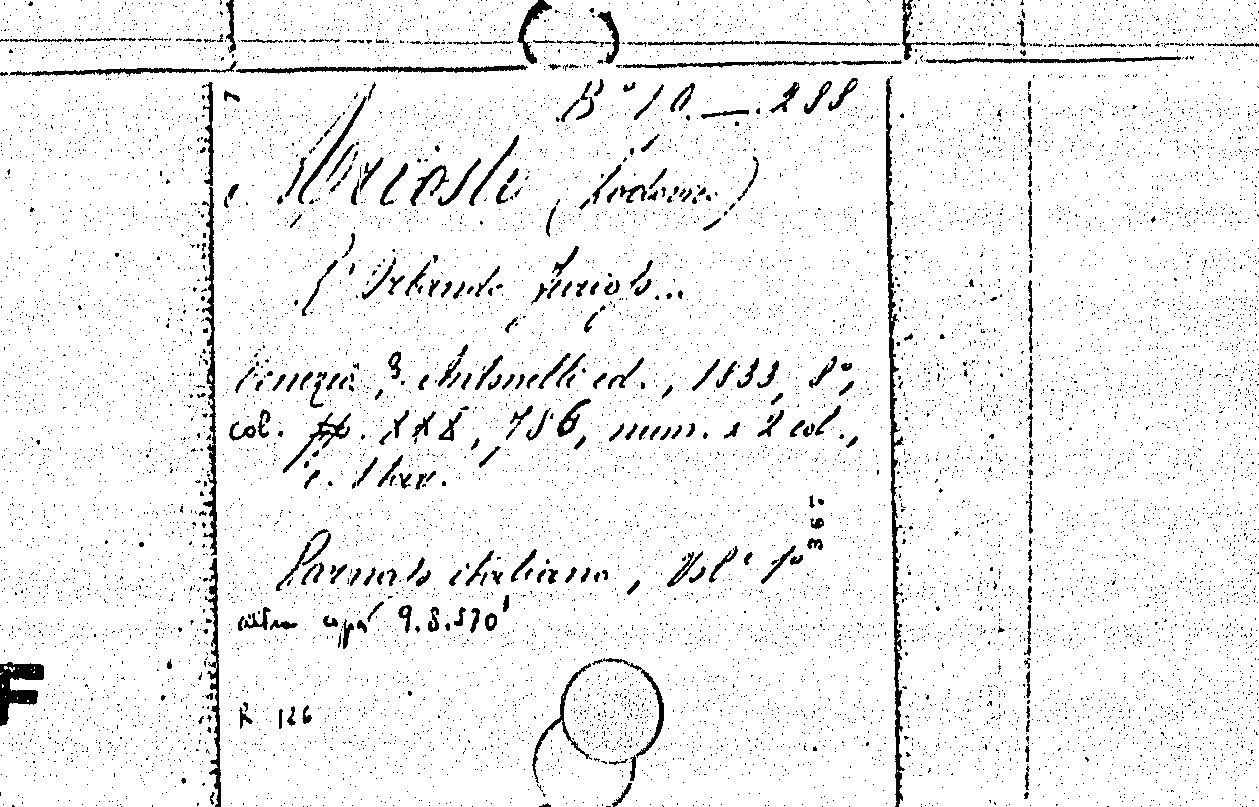 B° 10. — . 288
Ariosto (Lodovico)
L'Orlando furioso...
Venezia, G. Antonelli ed., 1833, 8°,
col. pp. XXX, 786, num. a 2 col.,
c. 1 tav.
Parnaso italiano, Vol° 1°
367
altra copia 9.8.570'
R 126
F